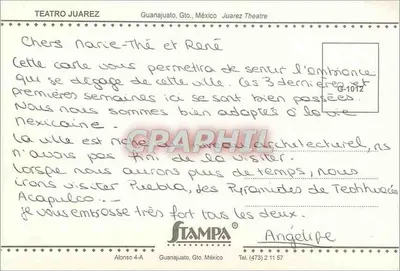 TEATRO JUAREZ Guanajuato, Gto., México Juarez Theatre
Chers Marie-Thé et René
Cette carte vous permettra de sentir l'ambiance
qui se dégage de cette ville. Ces 3 dernières et
premières semaines ici se sont bien passées.
G-1012
Nous nous sommes bien adaptés à la vie
mexicaine.
La ville est riche au niveau architecturel, ns
n'avons pas fini de la visiter.
Lorsque nous aurons plus de temps, nous
irons visiter Puebla, les Pyramides de Teotihuacán
Acapulco...
je vous embrasse très fort tous les deux.
Angélique
STAMPA
Alonso 4-A Guanajuato, Gto. México Tel. (473) 2 11 57
GRAPHTIL